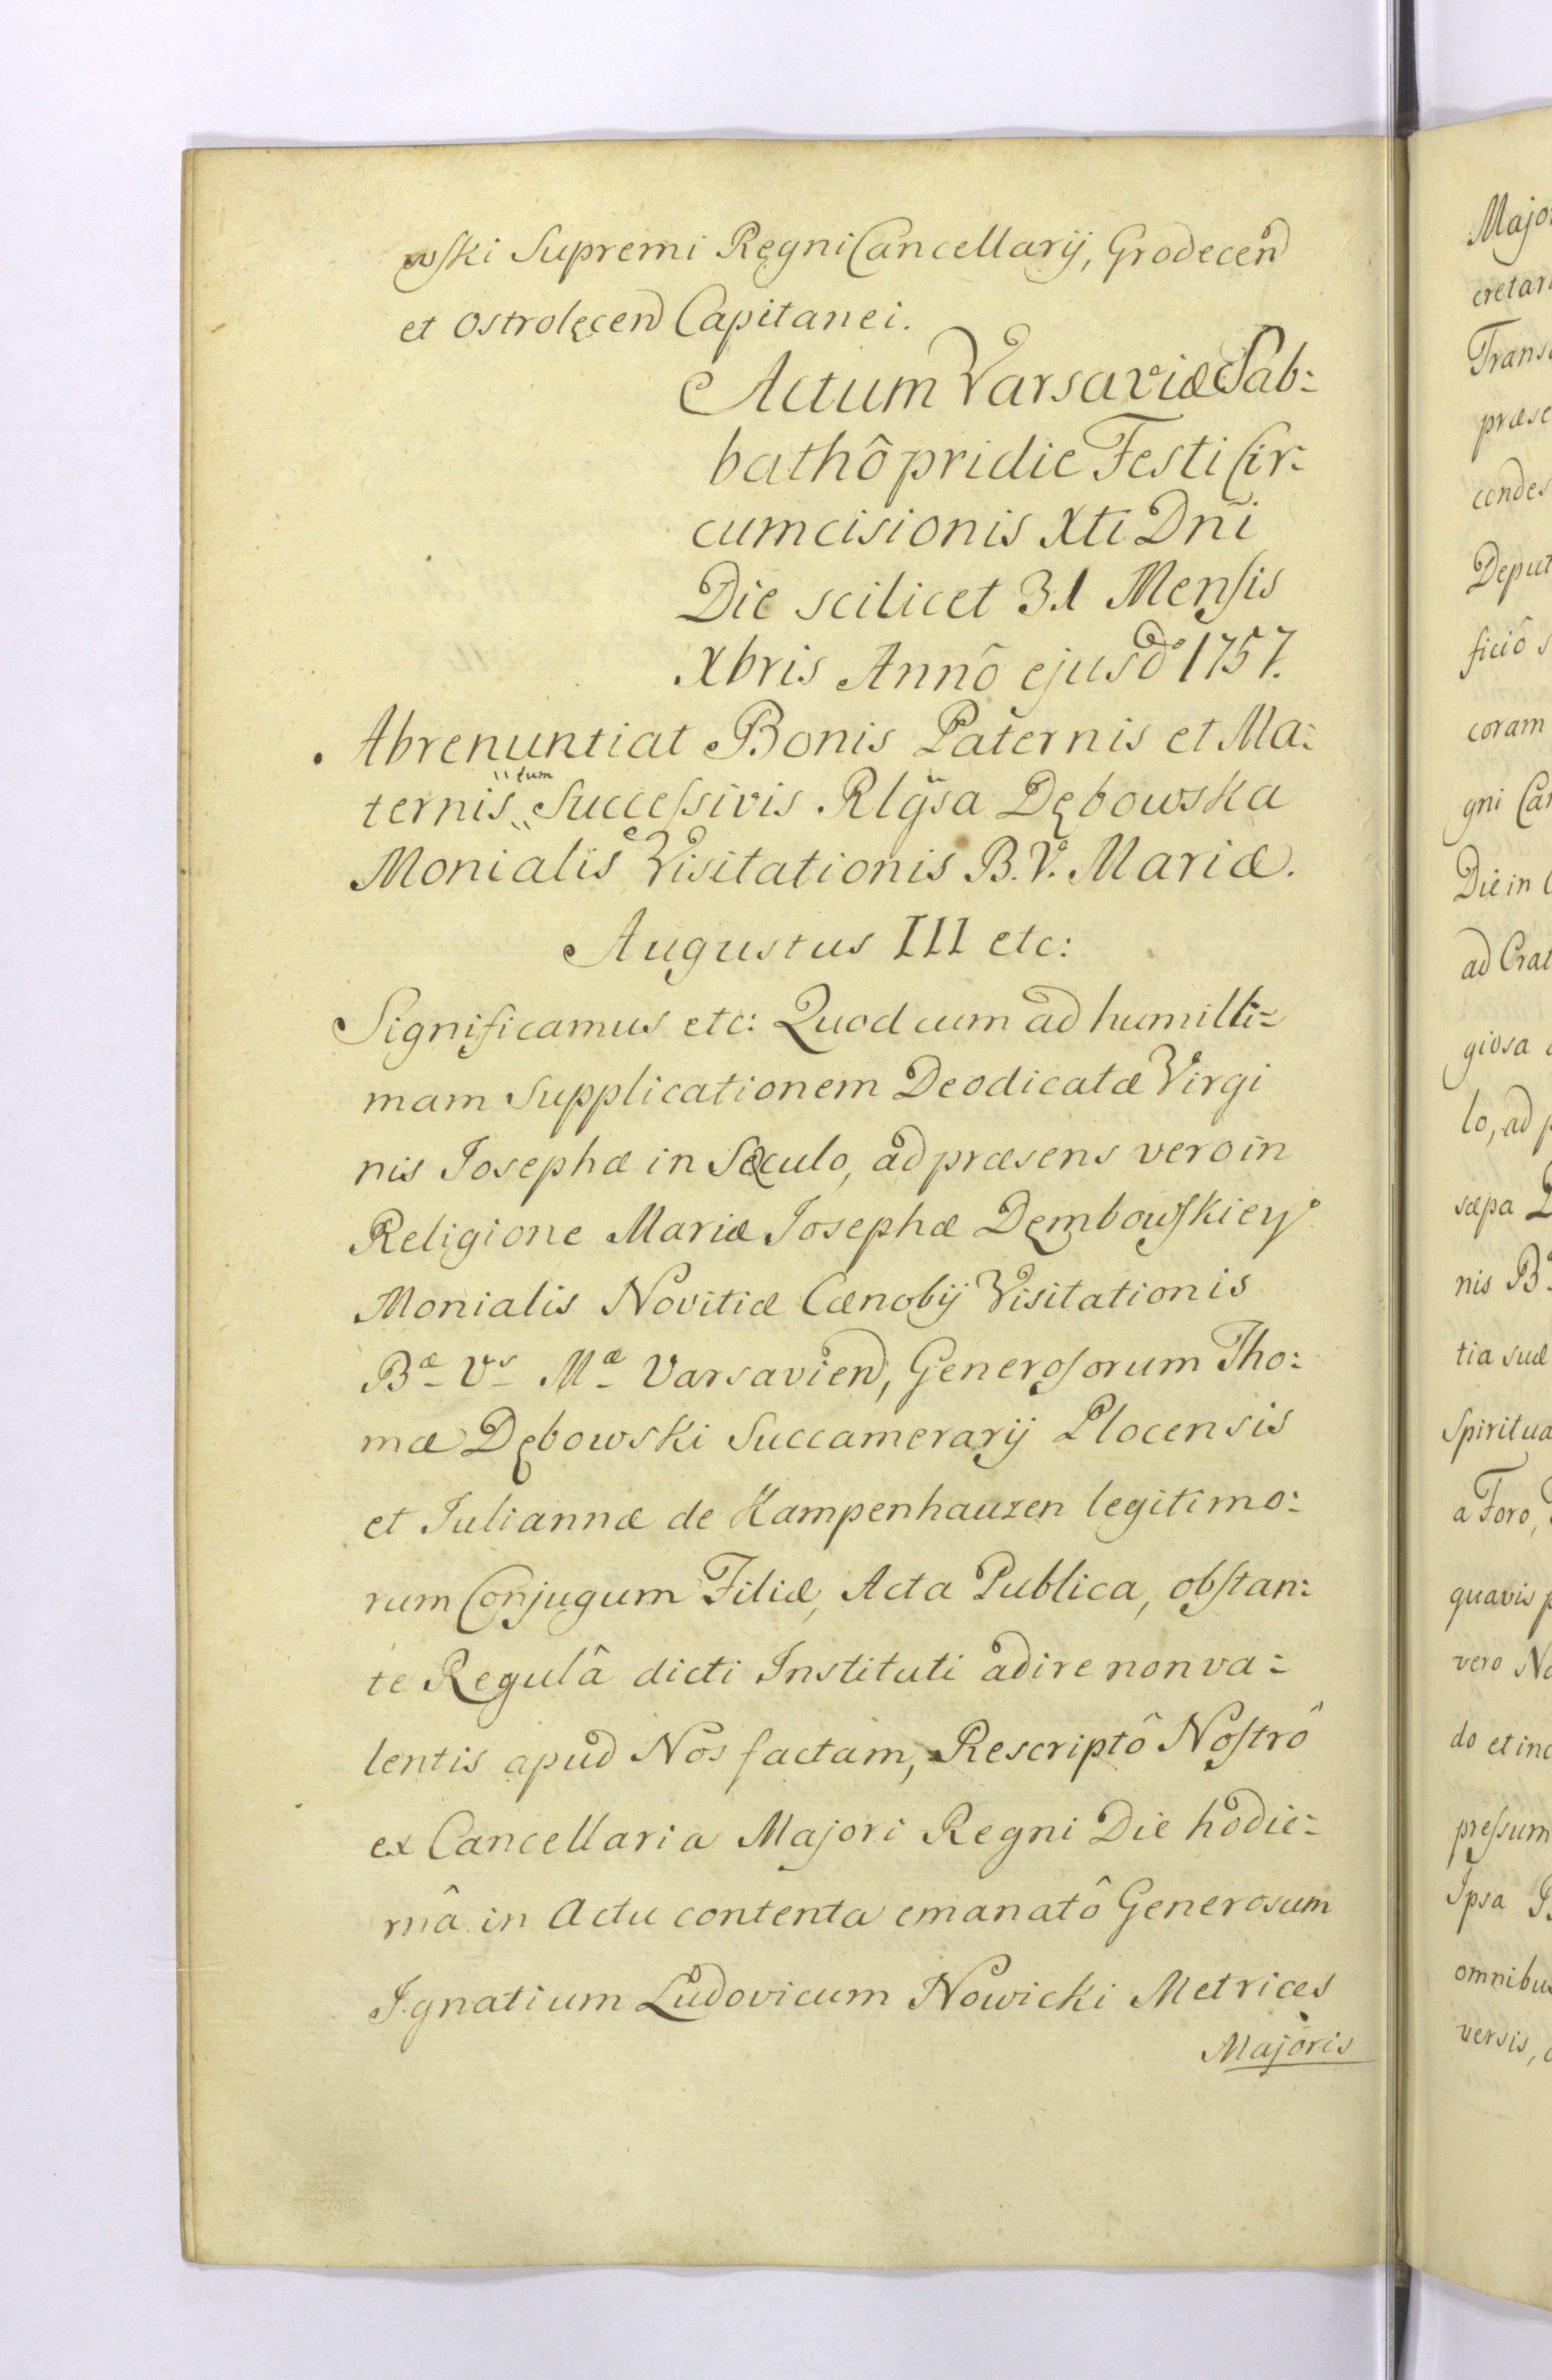 wski Supremi Regni Cancellarij, Grodecen
et Ostrolęcen Capitanei.
Actum Varsaviæ Sab:
bathô pridie Festi Cir:
cumcisionis Xti Dn̄i
Die scilicet 31 Mensis
Xbris Annô ejusd 1757.
Abrenuntiat Bonis Paternis et Ma:
ternis tum Successivis Rlgsa Dębowska
Monialis Visitationis B. V. Mariæ.
Augustus III etc:
Significamus etc: Quod cum ad humilli=
mam supplicationem Deodicatæ Virgi
nis Josephæ in Sæculo, ad præsens vero in
Religione Mariæ Josephæ Dęmbowskiey
Monialis Novitiæ Cænobij Visitationis
Bæ Vs Mæ Varsavien, Generosorum Tho:
mæ Dębowski Succamerarij Plocensis
et Juliannæ de Kampenhauzen legitimo:
rum Conjugum Filiæ, Acta Publica, obstan:
te Regulâ dicti Instituti adire non va=
lentis apud Nos factam, Rescriptô Nostrô
ex Cancellaria Majori Regni Die hodie=
rnâ in Actu contenta emanatô Generosum
Ignatium Ludovicum Nowicki Metrices
Majoris
Major
cretari
Trans
præse
condes
Deput
ficiô s
coram
gni Can
Die in
ad Crat
giosa
lo, ad p
sæpa
nis B.
tia suæ
Spiritua
a Foro,
quavis p
vero No
do et inc
pressum
Ipsa
omnibus
versis,